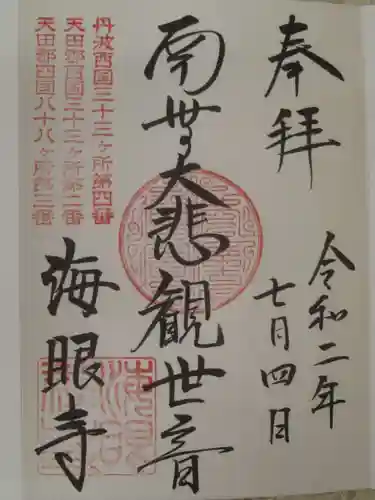 奉拝
令和二年
七月四日
南無大悲観世音
丹波西国三十三ヶ所第四番
天田郡西国三十三ヶ所第二番
天田郡四国八十八ヶ所第二番
海眼寺